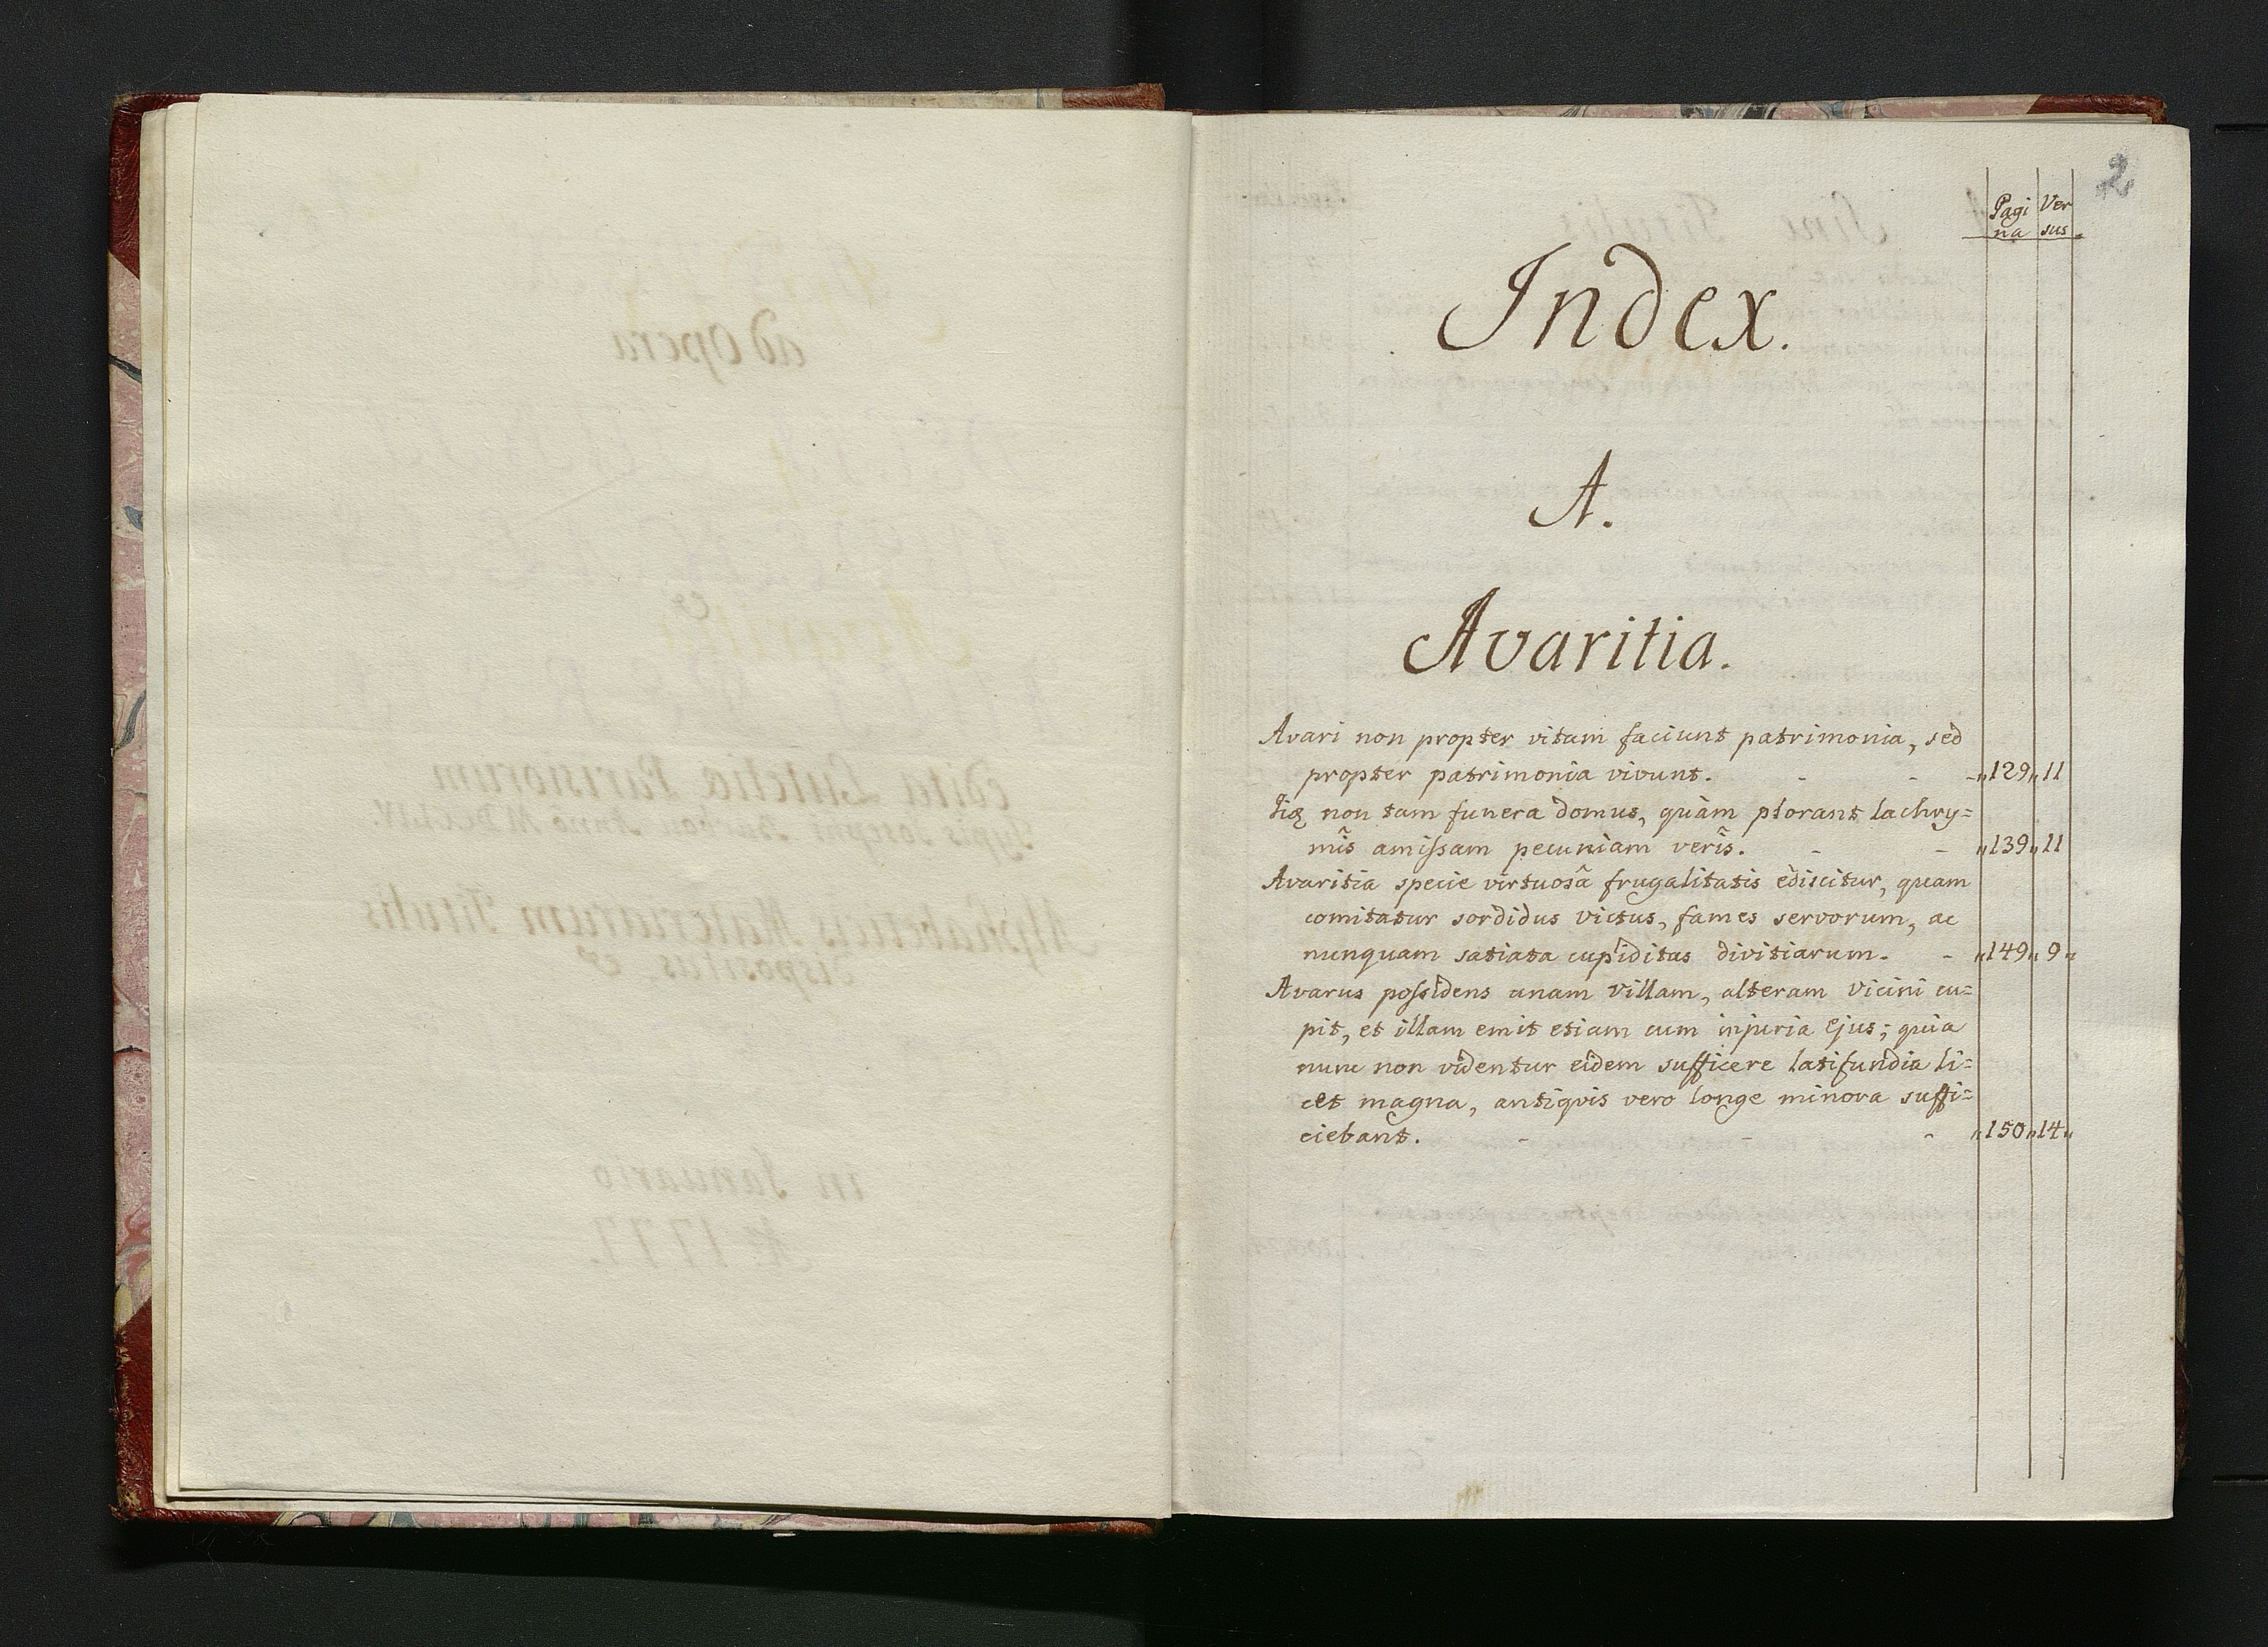 2
Pagi Ver
na sus
Index.
A.
Avaritia.
Avari non propter vitam faciunt patrimonia, sed
propter patrimonia vivunt. - - - „129„11
non tam funera domus, quàm plorant lachry=
mîs amissam pecuniam verîs. - - „139„11
Avaritia specie virtuosâ frugalitatis ediscitur, quam
comitatur sordidus victus, fames servorum, ac
nunquam satiata cupiditas divitiarum. - „149„9„
Avarus possidens unam villam, alteram vicini cu=
pit, et illam emit etiam cum injuria ejus; quia
nunc non videntur eidem sufficere latifundia li=
cet magna, antiqvis vero longe minora suffi=
ciebant. - - - „150„14„